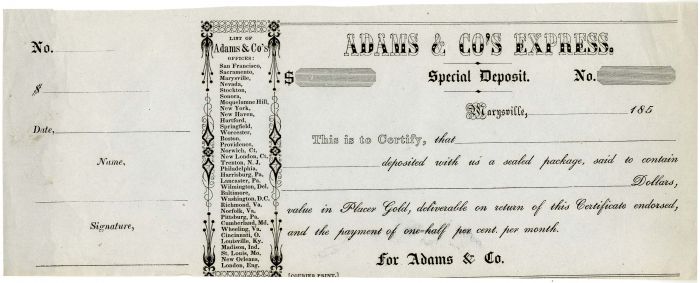 No.
$
Date,
Name,
Signature,
LIST OF
Adams & Co's
OFFICES:
San Francisco,
Sacramento,
Marysville,
Nevada,
Stockton,
Sonora,
Moquelumne Hill,
New York,
New Haven,
Hartford,
Springfield,
Worcester,
Boston,
Providence,
Norwich, Ct.
New London, Ct.
Trenton, N. J.
Philadelphia,
Harrisburg, Pa.
Lancaster, Pa.
Wilmington, Del.
Baltimore,
Washington, D.C.
Richmond, Va.
Norfolk, Va.
Pittsburg, Pa.
Cumberland, Md.
Wheeling, Va.
Cincinnati, O.
Louisville, Ky.
Madison, Ind.
St. Louis, Mo.
New Orleans,
London, Eng.
ADAMS & CO'S EXPRESS.
$ Special Deposit. No.
Marysville, 185
This is to Certify, that
deposited with us a sealed package, said to contain
Dollars,
value in Placer Gold, deliverable on return of this Certificate endorsed,
and the payment of one-half per cent. per month.
For Adams & Co.
[COURIER PRINT.]